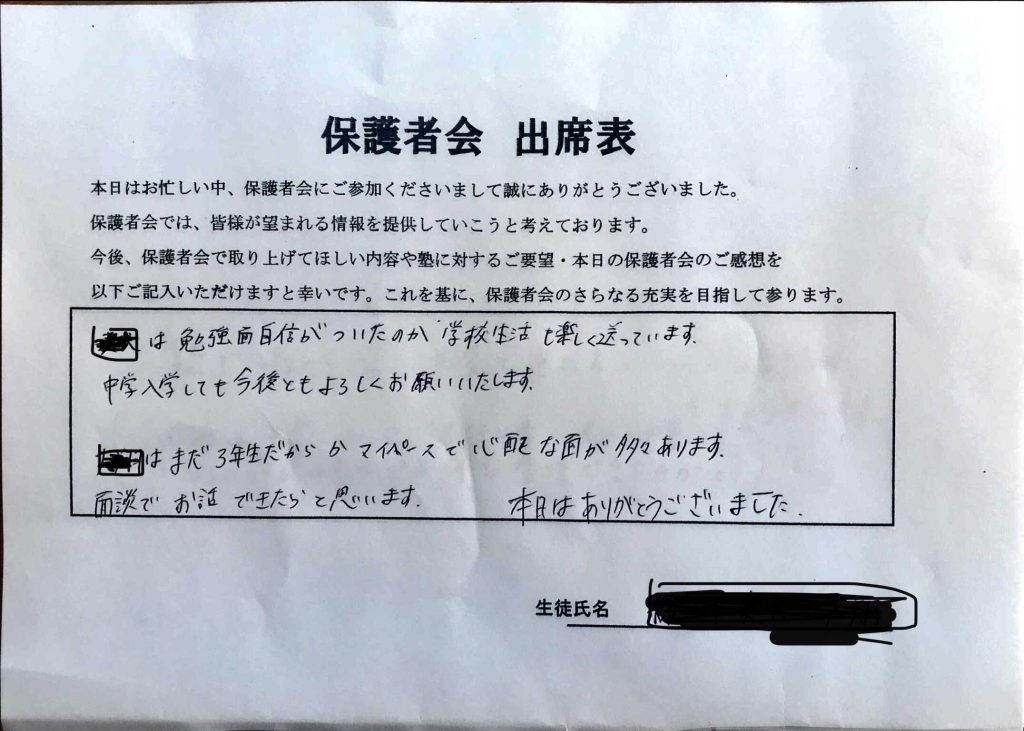 保護者会 出席表
本日はお忙しい中、保護者会にご参加くださいまして誠にありがとうございました。
保護者会では、皆様が望まれる情報を提供していこうと考えております。
今後、保護者会で取り上げてほしい内容や塾に対するご要望・本日の保護者会のご感想を
以下ご記入いただけますと幸いです。これを基に、保護者会のさらなる充実を目指して参ります。
は 勉強面自信がついたのか 学校生活も楽しく送っています。
中学入学しても今後ともよろしくお願いいたします。
はまだ3年生だからか マイペースで心配な面が多々あります。
面談で お話 できたらと思います。 本日はありがとうございました.
生徒氏名